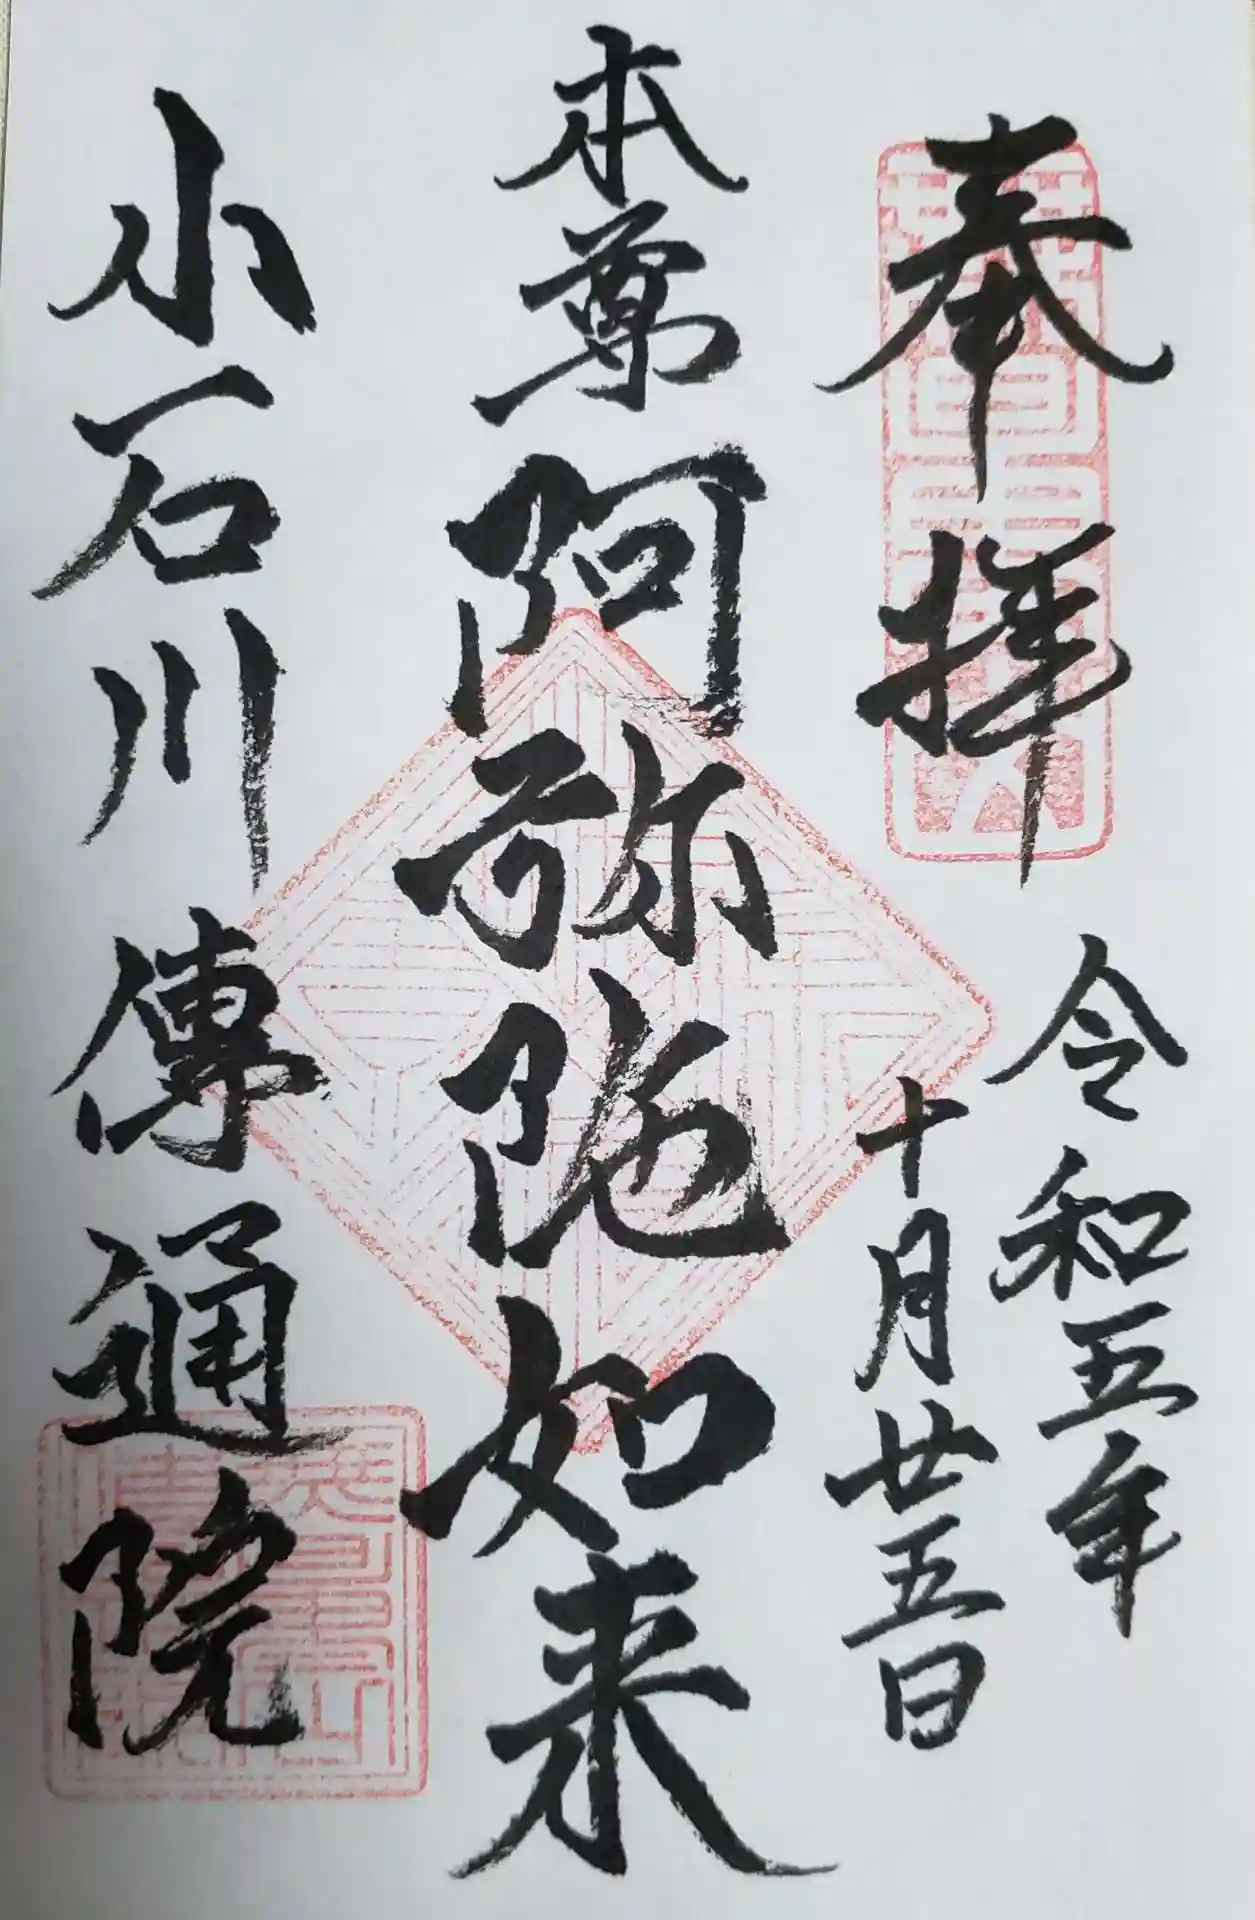 奉拝
令和五年
十月廿五日
本尊阿弥陀如来
小石川傳通院